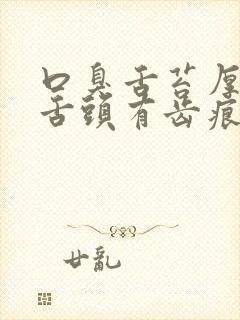 口臭舌苔厚
舌頭有齿痕
廿亂